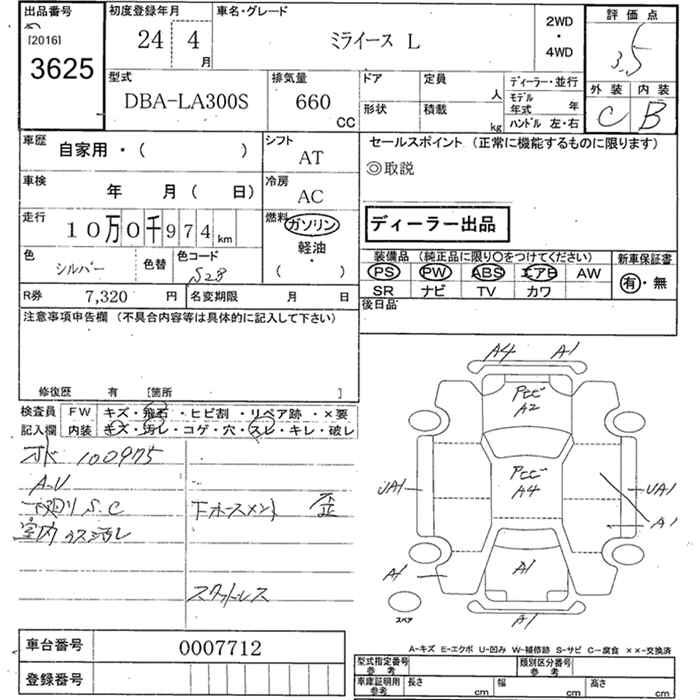 出品番号
[2016]
3625
初度登録年月
24 4
月
車名・グレード
ミライース L
2WD
・
4WD
評価点
3.5
外装 内装
C B
型式
DBA-LA300S
排気量
660
CC
ドア
定員
人
形状
積載
kg
ディーラー・並行
モデル
年式 年
ハンドル 左・右
車歴
自家用・( )
シフト
AT
セールスポイント (正常に機能するものに限ります)
◎取説
ディーラー出品
車検
年 月( 日)
冷房
AC
走行
10万0千974 km
燃料
ガソリン
軽油
・
( )
色
シルバー
色替
色コード
S28
装備品 (純正品に限り○をつけてください)
PS PW ABS エアB AW
SR ナビ TV カワ
新車保証書
有・無
R券 7,320 円
名変期限 月 日
後日品
注意事項申告欄 (不具合内容等は具体的に記入して下さい)
修復歴 有 [箇所 ]
検査員
記入欄
FW キズ・飛石・ヒビ割・リペア跡・×要
内装 キズ・汚レ・コゲ・穴・スレ・キレ・破レ
100975
A-U
S.C
下ホースメント 歪
スタッドレス
A4 A1
A2
A4
UA1
UA1
A1
A1
A1
A1
スペア
A-キズ E-エクボ U-凹み W-補修跡 S-サビ C-腐食 ××-交換済
車台番号
0007712
登録番号
型式指定番号
参考
類別区分番号
参考
車庫証明用
参考
長さ cm
幅 cm
高さ cm